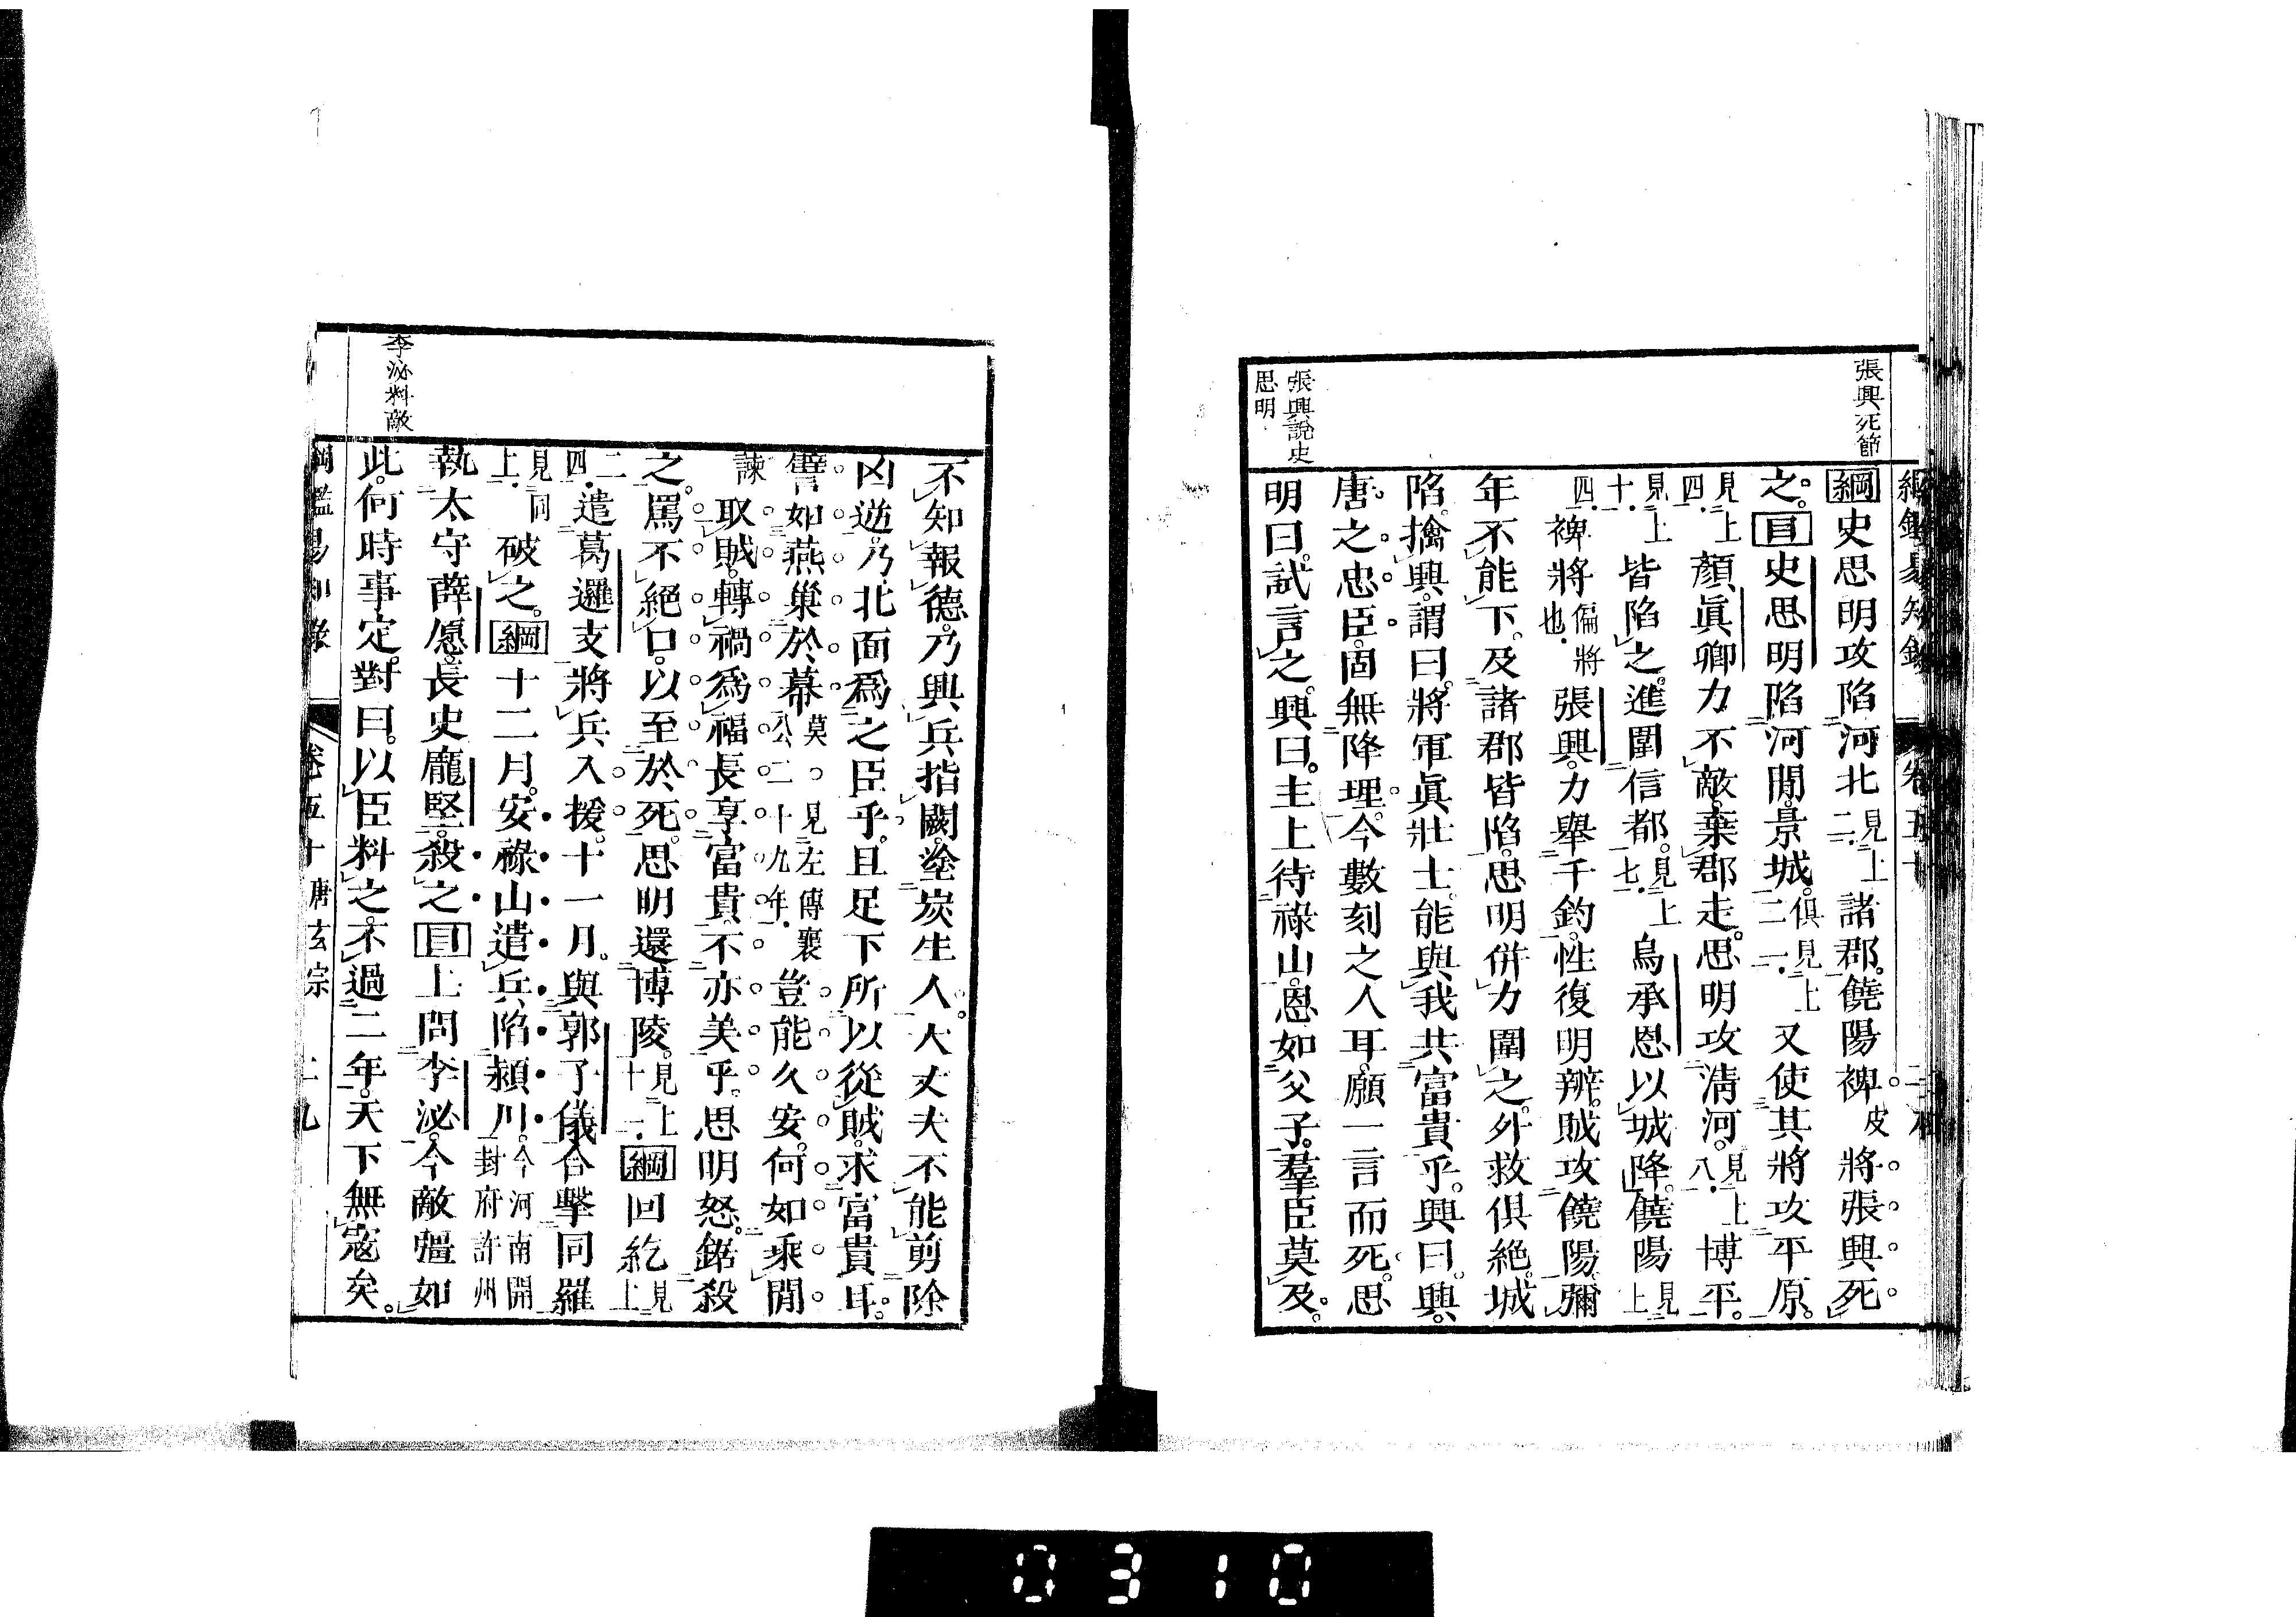 張興死節
綱史思明攻陷河北見上二二諸郡。饒陽裨皮將張興死
之。目史思明陷河閒。景城。俱見上二一又使其將攻平原。
見上四顏眞卿力不敵。棄郡走。思明攻淸河。見上八博平。
見上十皆陷之。進圍信都。見上七烏承恩以城降。饒陽見上
四裨將偏將也張興。力舉千鈞。性復明辨。賊攻饒陽。彌
年不能下。及諸郡皆陷。思明併力圍之。外救俱絕。城
陷。擒興。謂曰。將軍眞壯士。能與我共富貴乎。興曰。興。
唐之忠臣。固無降理。今數刻之人耳。願一言而死。思
張興說史
思明
明曰。試言之。興曰。主上待祿山。恩如父子。羣臣莫及。
不知報德。乃興兵指闕。塗炭生人。大丈夫不能剪除
凶逆。乃北面爲之臣乎。且足下所以從賊。求富貴耳。
譬如燕巢於幕莫。見左傳襄公二十九年豈能久安。何如乘閒
諫取賊。轉禍爲福。長享富貴。不亦美乎。思明怒。鋸殺
之。罵不絕口。以至於死。思明還博陵。見上十一綱回紇見上
二四遣葛邏支將兵入援。十一月。與郭子儀合擊同羅
見同上破之。綱十二月。安祿山遣兵陷潁川。今河南開封府許州
執太守薛愿。長史龐堅。殺之目上問李泌。今敵彊如
李泌料敵
此。何時事定。對曰。以臣料之。不過二年。天下無寇矣。
綱鑑易知錄 卷五十 唐玄宗
0310